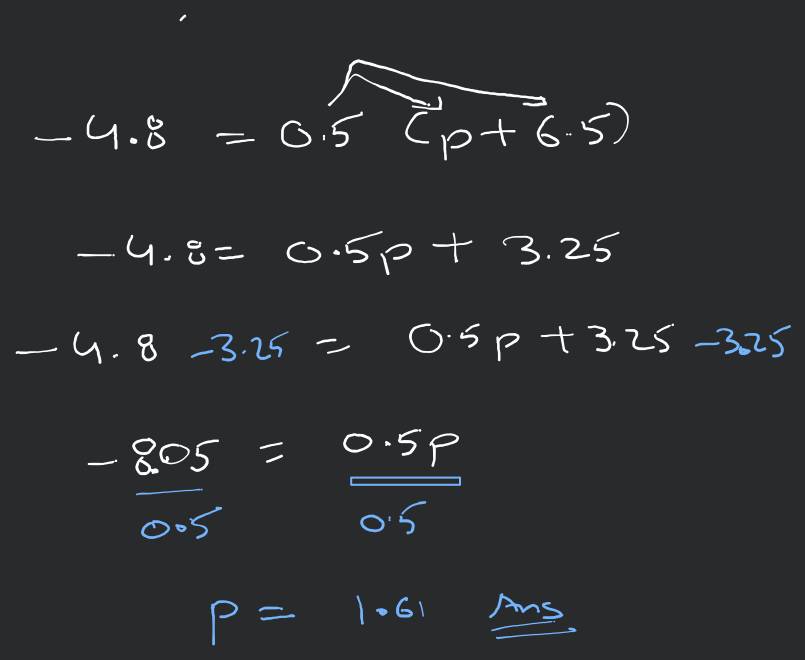 -4.8 = 0.5 (p+6.5)
-4.8= 0.5p + 3.25
-4.8 -3.25 = 0.5p + 3.25 -3.25
-8.05 = 0.5p
0.5 0.5
p = 1.61 Ans